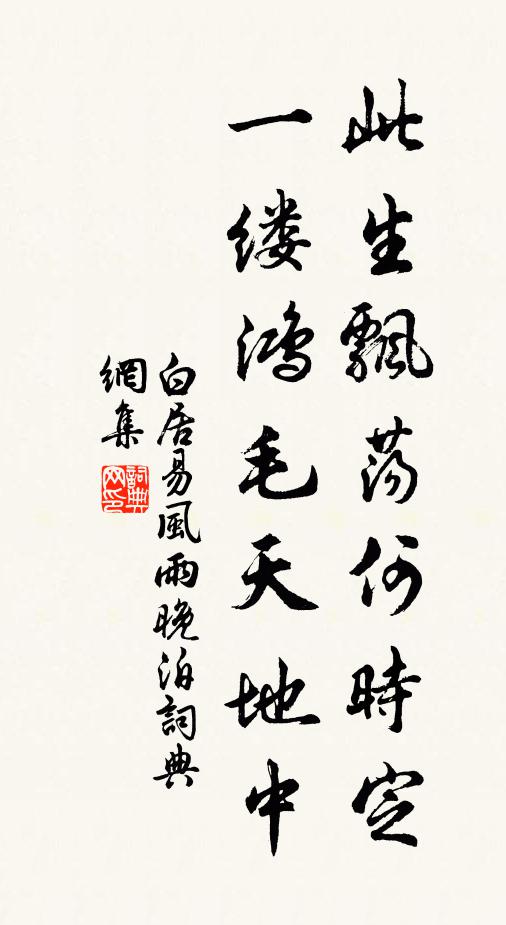 此生飄蕩何時定
一缕鴻毛天地中
白居易風雨晚泊詞典
網集
詞典
网印